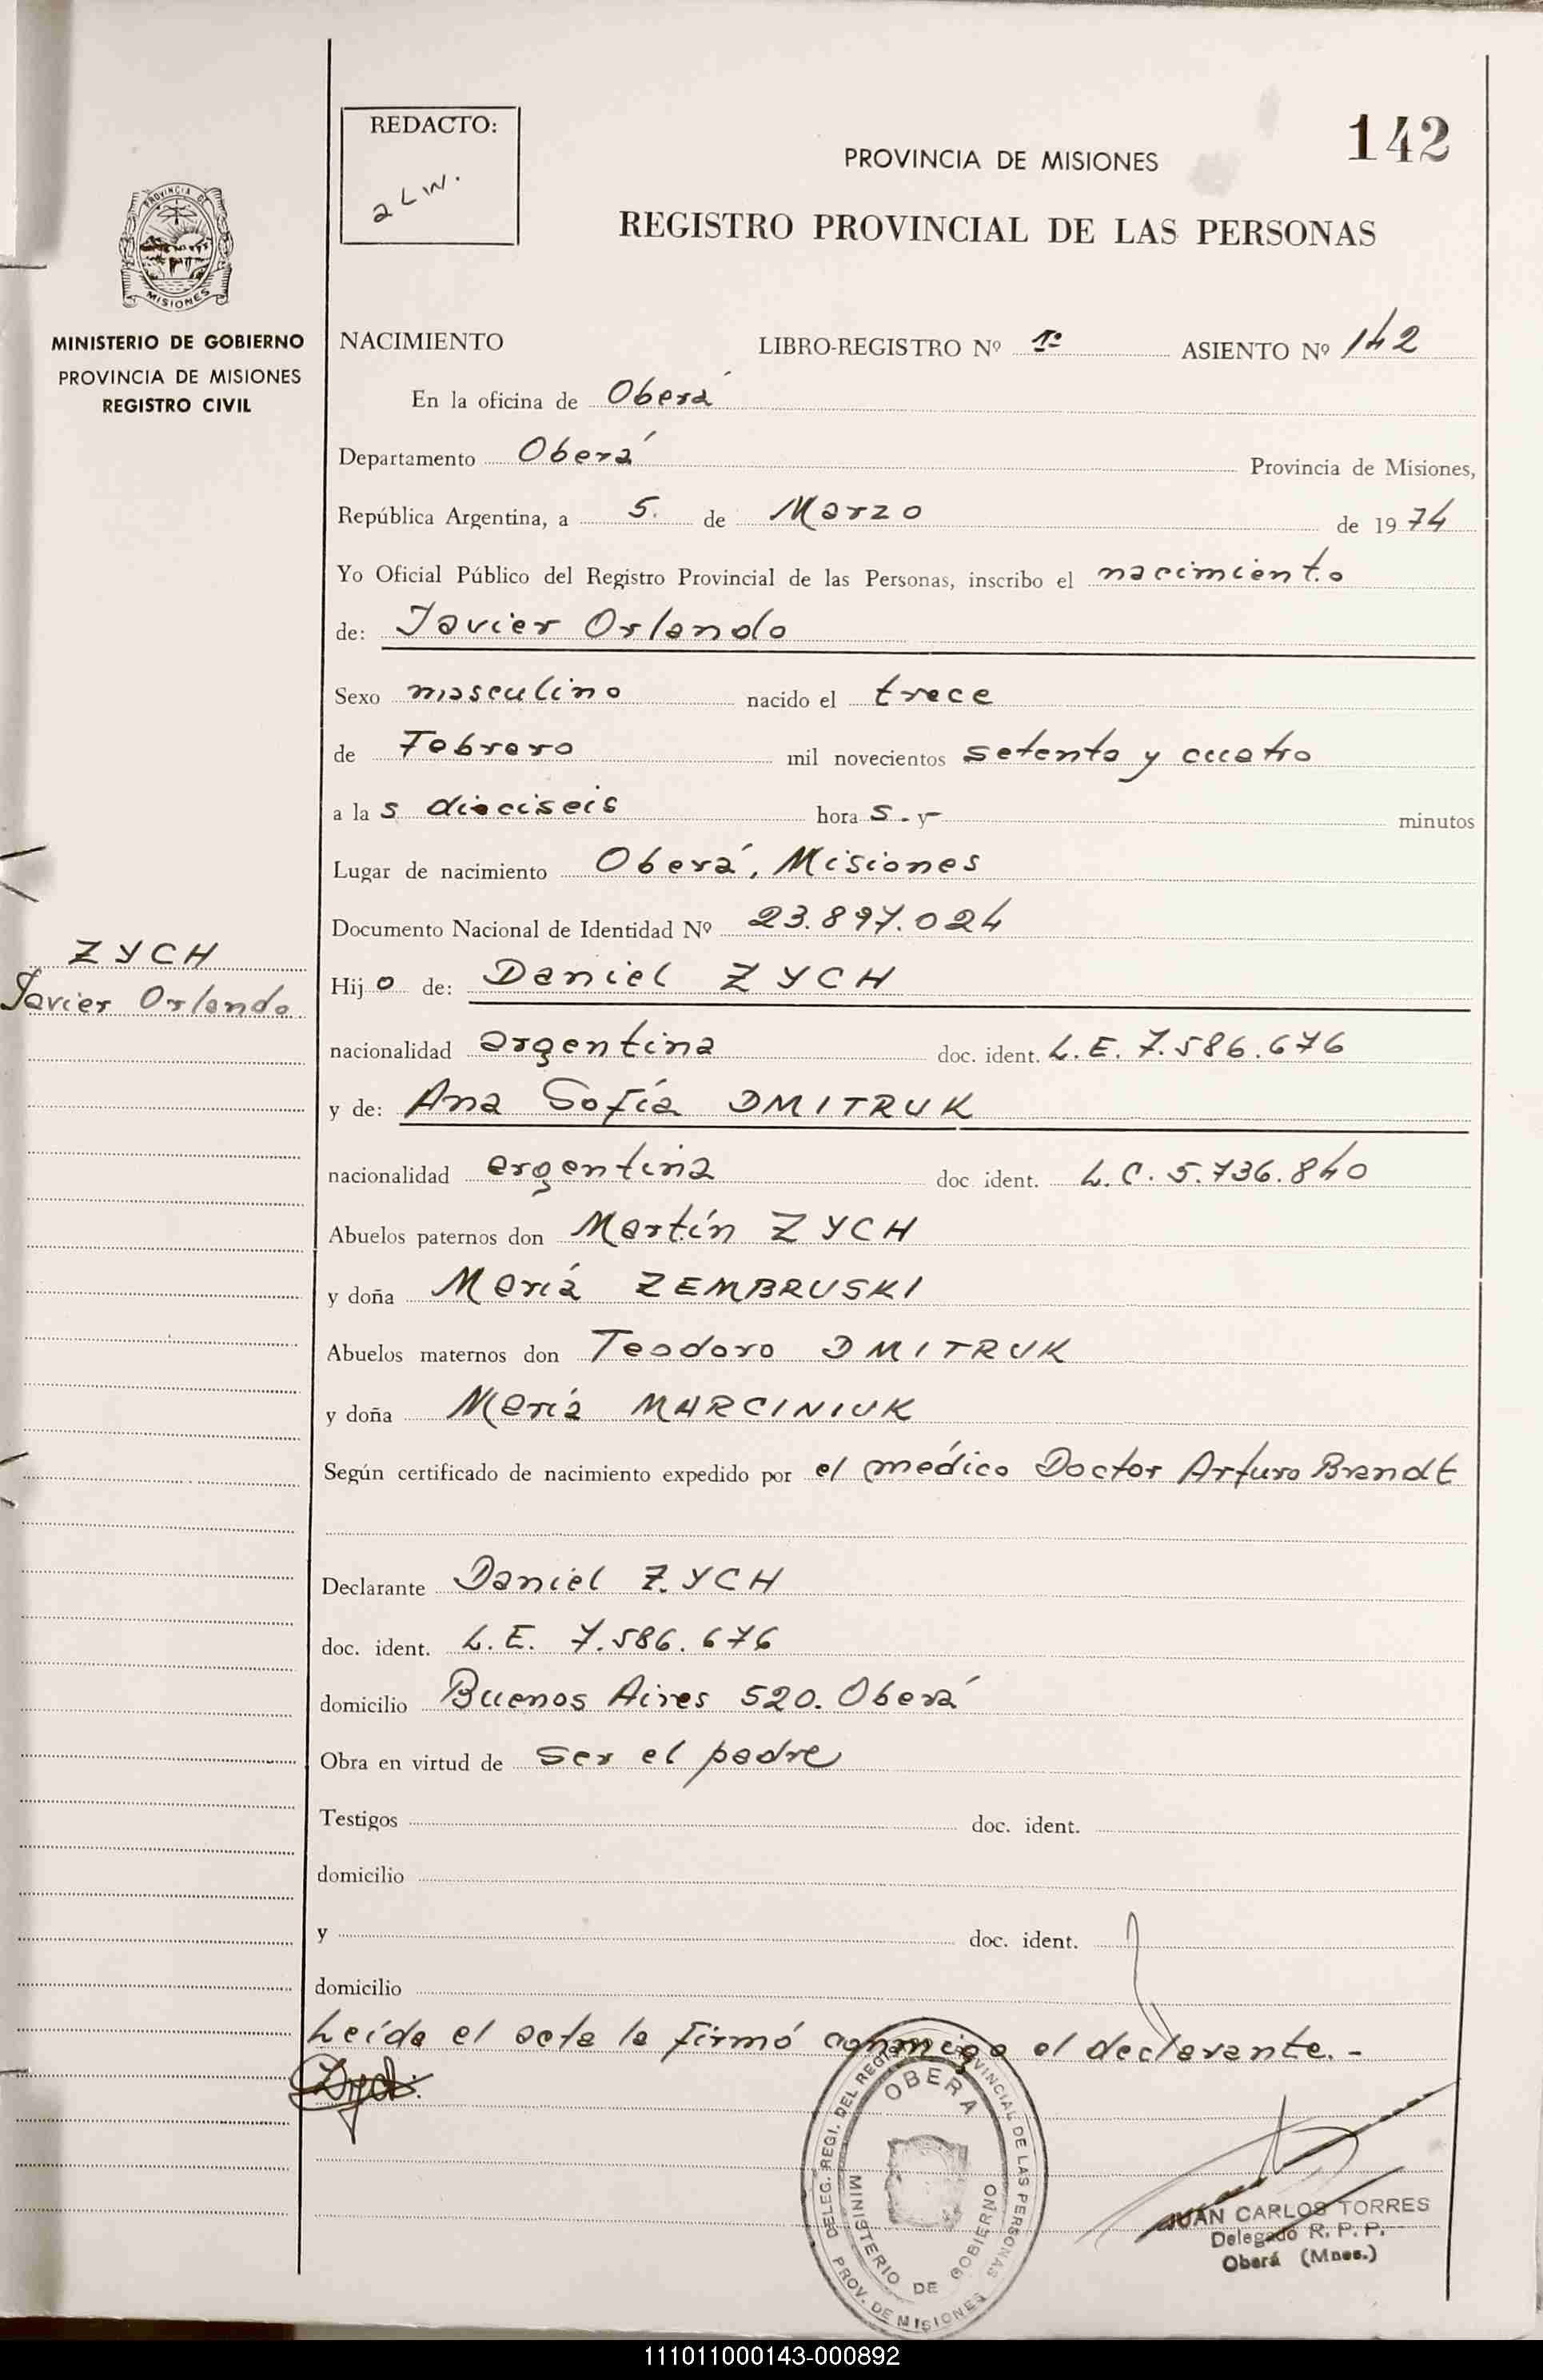 REDACTO:
142
PROVINCIA DE MISIONES
REGISTRO PROVINCIAL DE LAS PERSONAS
PROVINCIA DE
MISIONES
MINISTERIO DE GOBIERNO
PROVINCIA DE MISIONES
REGISTRO CIVIL
NACIMIENTO LIBRO-REGISTRO Nº 1º ASIENTO Nº 142
En la oficina de Oberá
Departamento Oberá Provincia de Misiones,
República Argentina, a 5. de Marzo de 1974
Yo Oficial Público del Registro Provincial de las Personas, inscribo el nacimiento
de: Javier Orlando
Sexo masculino nacido el trece
de Febrero mil novecientos setenta y cuatro
a las dieciseis horas.- y- minutos
Lugar de nacimiento Oberá, Misiones
Documento Nacional de Identidad Nº 23.897.024
ZYCH
Javier Orlando
Hijo de: Daniel ZYCH
nacionalidad argentina doc. ident. L.E. 7.586.676
y de: Ana Sofía DMITRUK
nacionalidad argentina doc. ident. L.C. 5.736.840
Abuelos paternos don Martín ZYCH
y doña María ZEMBRUSKI
Abuelos maternos don Teodoro DMITRUK
y doña María MARCINIUK
Según certificado de nacimiento expedido por el médico Doctor Arturo Brandt
Declarante Daniel ZYCH
doc. ident. L.E. 7.586.676
domicilio Buenos Aires 520. Oberá
Obra en virtud de ser el padre
Testigos doc. ident.
domicilio
y doc. ident.
domicilio
Leída el acta la firmó conmigo el declarante.-
Zych
DELEG. REGI. DEL REGISTRO PROVINCIAL DE LAS PERSONAS
OBERA
MINISTERIO DE GOBIERNO
PROV. DE MISIONES
JUAN CARLOS TORRES
Delegado R. P. P.
Oberá (Mnes.)
111011000143-000892